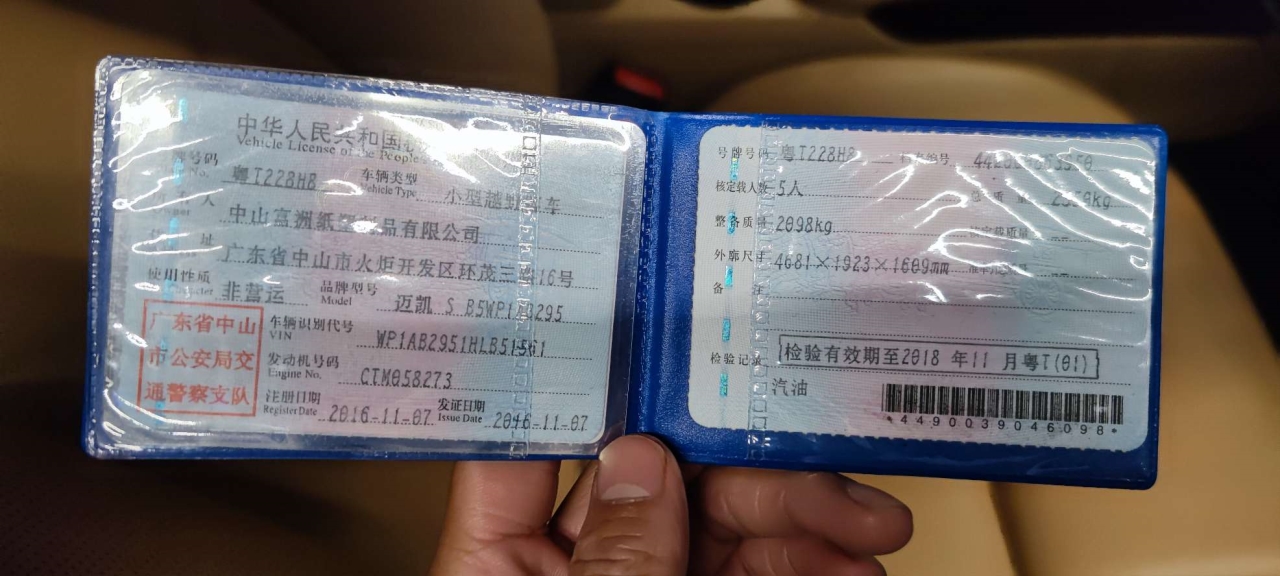 中华人民共和国
Vehicle License of the People's
号码 粤T228H8 车辆类型 小型越野客车
No. Vehicle Type
人 中山 洲纸 品有限公司
址 广东省中山市火炬开发区环茂三路16号
使用性质 非营运 品牌型号 迈凯 S B5WP1
Model
车辆识别代号 WP1AB2951HLB51561
VIN
发动机号码 CTM058273
Engine No.
注册日期 2016-11-07 发证日期 2016-11-07
Register Date Issue Date
广东省中山
市公安局交
通警察支队
号牌号码 粤T228H8 编号
核定载人数 5人 总质量
整备质量 2098kg 质量
外廓尺寸 4681×1923×1609mm
备 注
检验记录 检验有效期至2018 年11 月粤T(01)
汽油
*4490039046098*